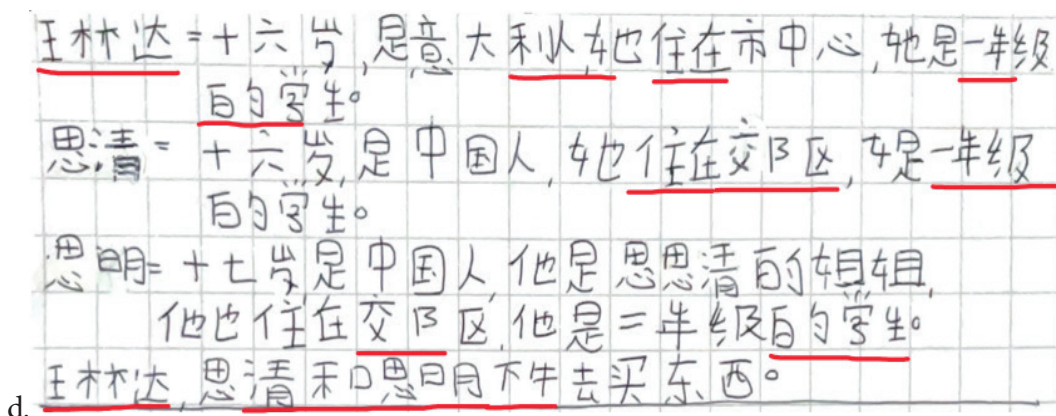 王林达=十六岁,是意大利人,她住在市中心,她是一年级
的学生。
思清= 十六岁,是中国人,她住在交阝区,她是一年级
的学生。
思明=十七岁是中国人,他是思思清的姐姐,
他也住在交阝区,他是二年级的学生。
王林达,思清和思明下午去买东西。
d.